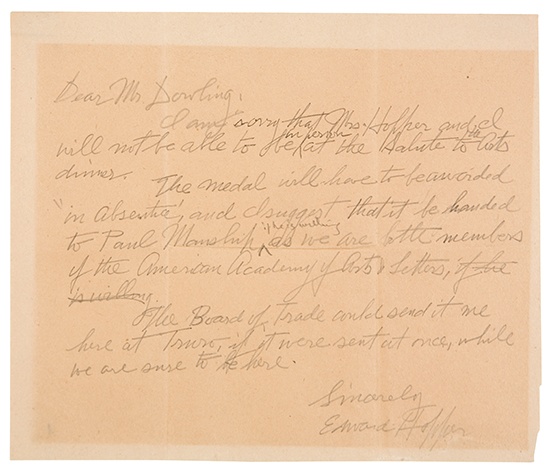 Dear Mr. Dowling,
I am sorry that Mrs. Hopper and I
will not be able to be in person at the Salute to the Arts
dinner.
The medal will have to be awarded
"in Absentia", and I suggest that it be handed
to Paul Manship if he is willing as we are both members
of the American Academy of Arts & Letters, if he
is willing.
The Board of Trade could send it me
here at Truro, if it were sent at once, while
we are sure to be here.
Sincerely
Edward Hopper